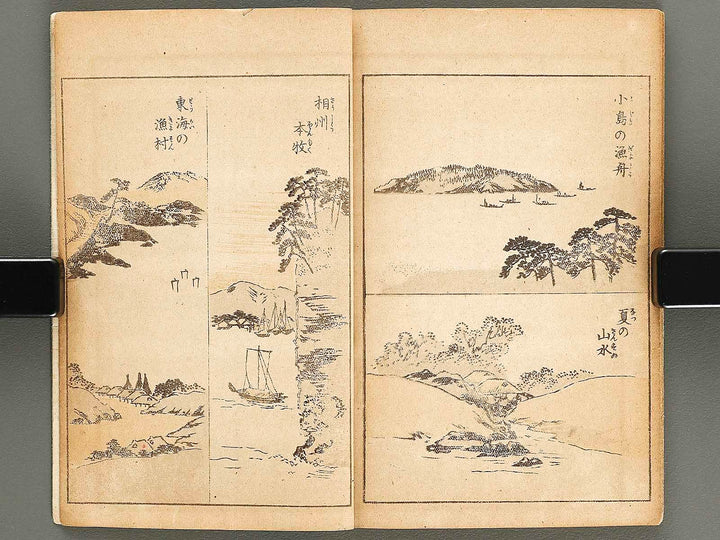 小島の漁舟
夏の
山水
相州
本牧
東海の
漁村